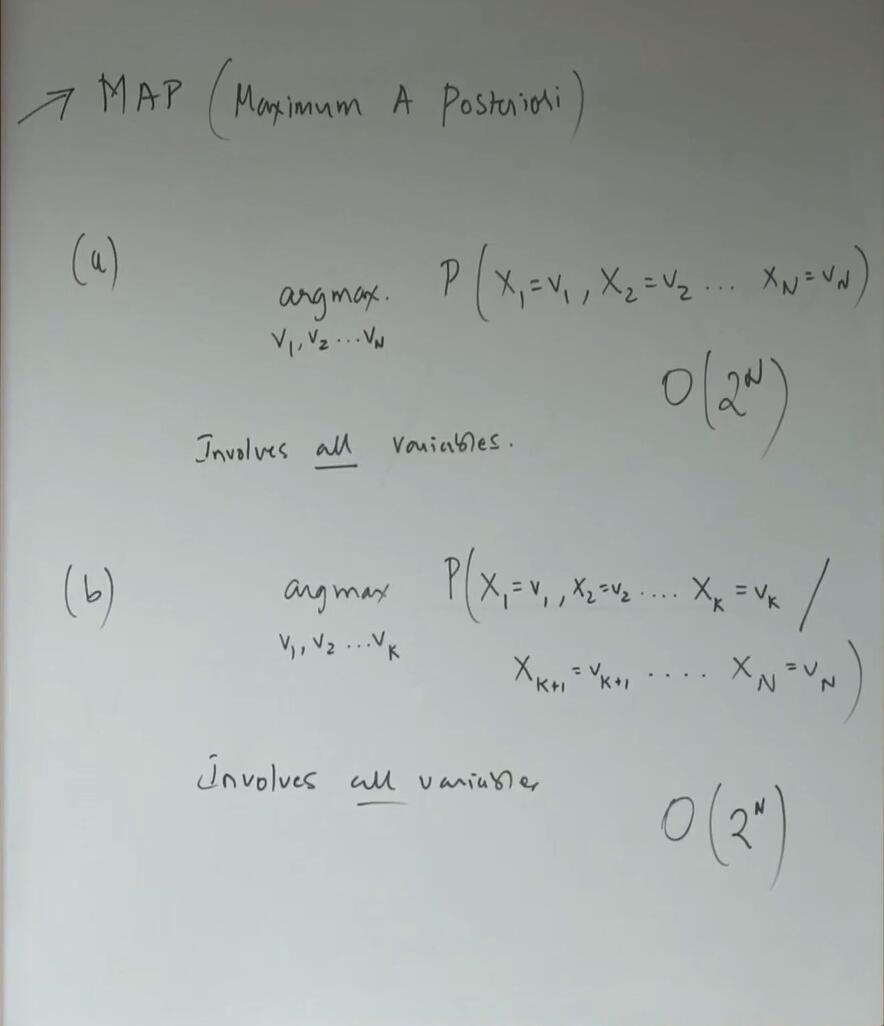 → MAP (Maximum A Posteriori)
(a)
argmax. P(X₁=v₁, X₂=v₂ ... X_N=v_N)
v₁, v₂ ... v_N
O(2^N)
Involves all variables.
(b)
argmax P(X₁=v₁, X₂=v₂ .... X_K=v_K /
v₁, v₂ ... v_K
X_{K+1}=v_{K+1} .... X_N=v_N)
involves all variables
O(2^N)